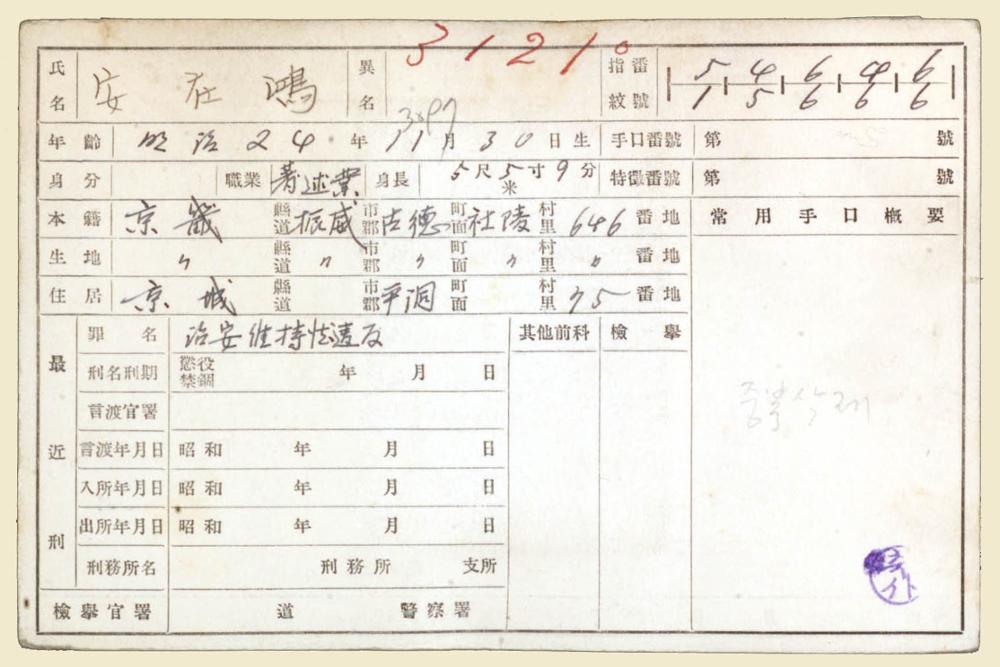 31210
氏名 安在鴻 異名 指紋番號 5 4 6 4 6 / 1 5 6 6 6
3897
年齡 明治24年11月30日生 手口番號 第 號
身分 職業 著述業 身長 5尺5寸9分 米 特徵番號 第 號
本籍 京畿 縣道 振威 市郡 古德 町面 社陵 村里 646 番地 常用手口槪要
生地 〃 縣道 〃 市郡 〃 町面 〃 村里 〃 番地
住居 京城 縣道 市郡 平洞 町面 村里 75 番地
最近刑 罪名 治安維持法違反 其他前科 檢擧
刑名刑期 懲役 禁錮 年 月 日
중복삭제
言渡官署
言渡年月日 昭和 年 月 日
入所年月日 昭和 年 月 日
出所年月日 昭和 年 月 日
刑務所名 刑務所 支所
檢擧官署 道 警察署